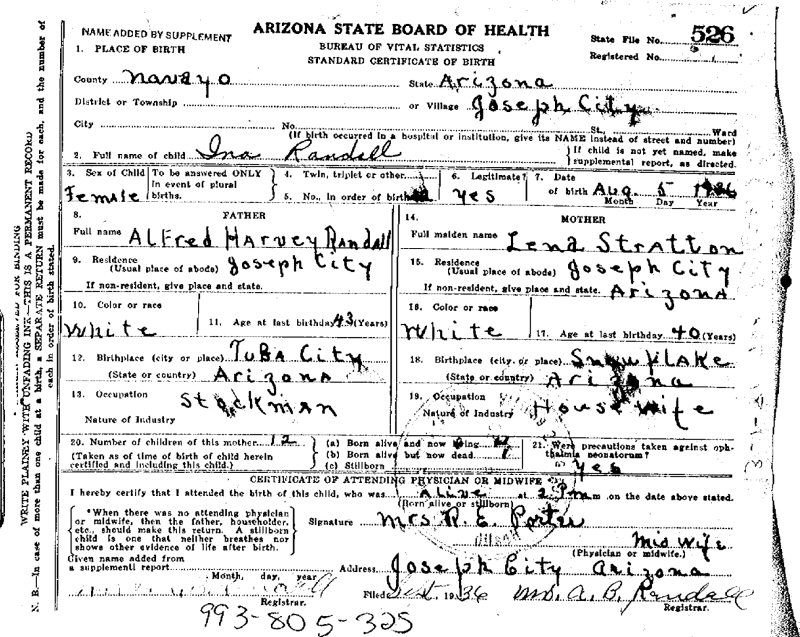 ARIZONA STATE BOARD OF HEALTH
NAME ADDED BY SUPPLEMENT
BUREAU OF VITAL STATISTICS
STANDARD CERTIFICATE OF BIRTH
State File No. 526
Registered No.
1. PLACE OF BIRTH
County Navayo State Arizona
District or Township or Village Joseph City
City No. St., Ward
(If birth occurred in a hospital or institution, give its NAME instead of street and number)
2. Full name of child Ina Randall
If child is not yet named, make supplemental report, as directed.
3. Sex of Child Female
To be answered ONLY in event of plural births.
4. Twin, triplet or other
5. No., in order of birth
6. Legitimate? Yes
7. Date of birth Aug. 5 1936
Month Day Year
8. FATHER
Full name Alfred Harvey Randall
9. Residence (Usual place of abode) Joseph City
If non-resident, give place and state.
10. Color or race White
11. Age at last birthday 43 (Years)
12. Birthplace (city or place) Tuba City
(State or country) Arizona
13. Occupation Stockman
Nature of Industry
14. MOTHER
Full maiden name Lena Stratton
15. Residence (Usual place of abode) Joseph City
If non-resident, give place and state. Arizona
16. Color or race White
17. Age at last birthday 40 (Years)
18. Birthplace (city or place) Snowflake
(State or country) Arizona
19. Occupation
Nature of Industry House wife
20. Number of children of this mother 12
(Taken as of time of birth of child herein certified and including this child.)
(a) Born alive and now living 11
(b) Born alive but now dead 1
(c) Stillborn
21. Were precautions taken against ophthalmia neonatorum? Yes
CERTIFICATE OF ATTENDING PHYSICIAN OR MIDWIFE
I hereby certify that I attended the birth of this child, who was Alive at 2 Pm on the date above stated.
(Born alive or stillborn)
*When there was no attending physician or midwife, then the father, householder, etc., should make this return. A stillborn child is one that neither breathes nor shows other evidence of life after birth.
Signature Mrs R. E. Porter
Mid wife
(Physician or midwife.)
Given name added from a supplemental report
Month, day, year
Registrar.
Address Joseph City Arizona
Filed 1936 Mrs. A. B. Randall
Registrar.
993-805-325
WRITE PLAINLY WITH UNFADING INK—THIS IS A PERMANENT RECORD
N. B.—In case of more than one child at a birth, a SEPARATE RETURN must be made for each, and the number of each in order of birth stated.